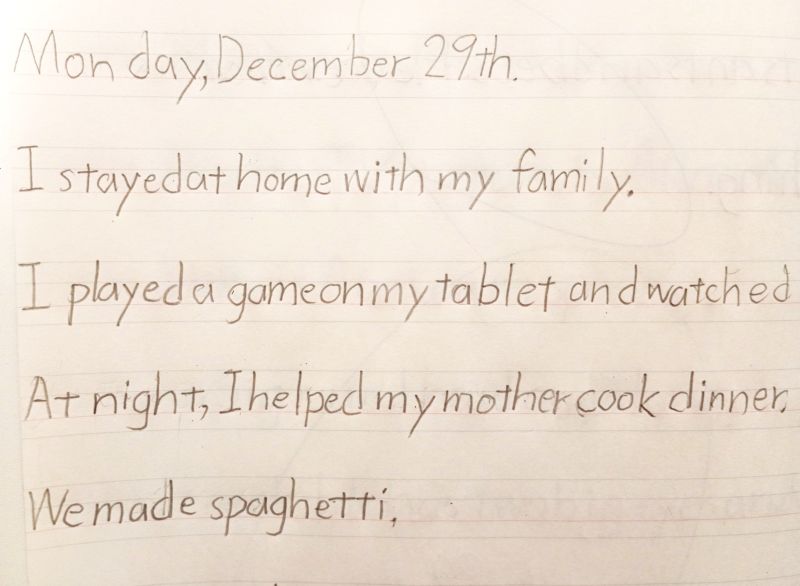 Monday, December 29th.
I stayed at home with my family.
I played a game on my tablet and watched
At night, I helped my mother cook dinner.
We made spaghetti.